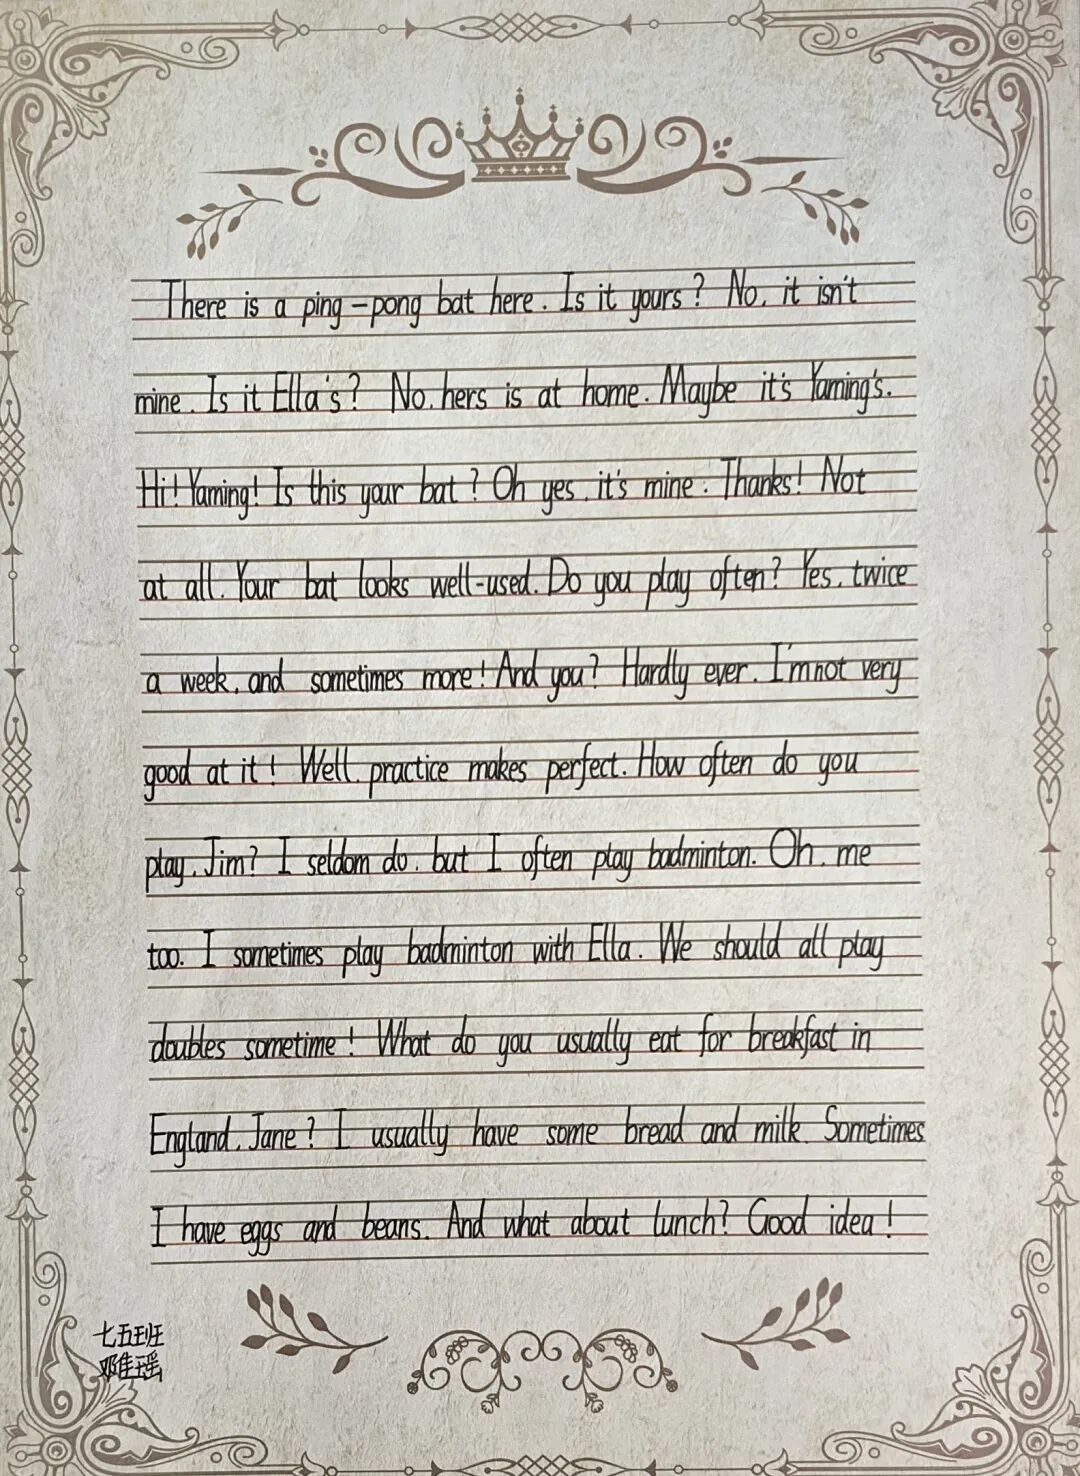 There is a ping-pong bat here. Is it yours? No, it isn't
mine. Is it Ella's? No, hers is at home. Maybe it's Yaming's.
Hi! Yaming! Is this your bat? Oh yes, it's mine. Thanks! Not
at all. Your bat looks well-used. Do you play often? Yes, twice
a week, and sometimes more! And you? Hardly ever. I'm not very
good at it! Well, practice makes perfect. How often do you
play, Jim? I seldom do, but I often play badminton. Oh, me
too. I sometimes play badminton with Ella. We should all play
doubles sometime! What do you usually eat for breakfast in
England, Jane? I usually have some bread and milk. Sometimes
I have eggs and beans. And what about lunch? Good idea!
七五班
邓隹瑶